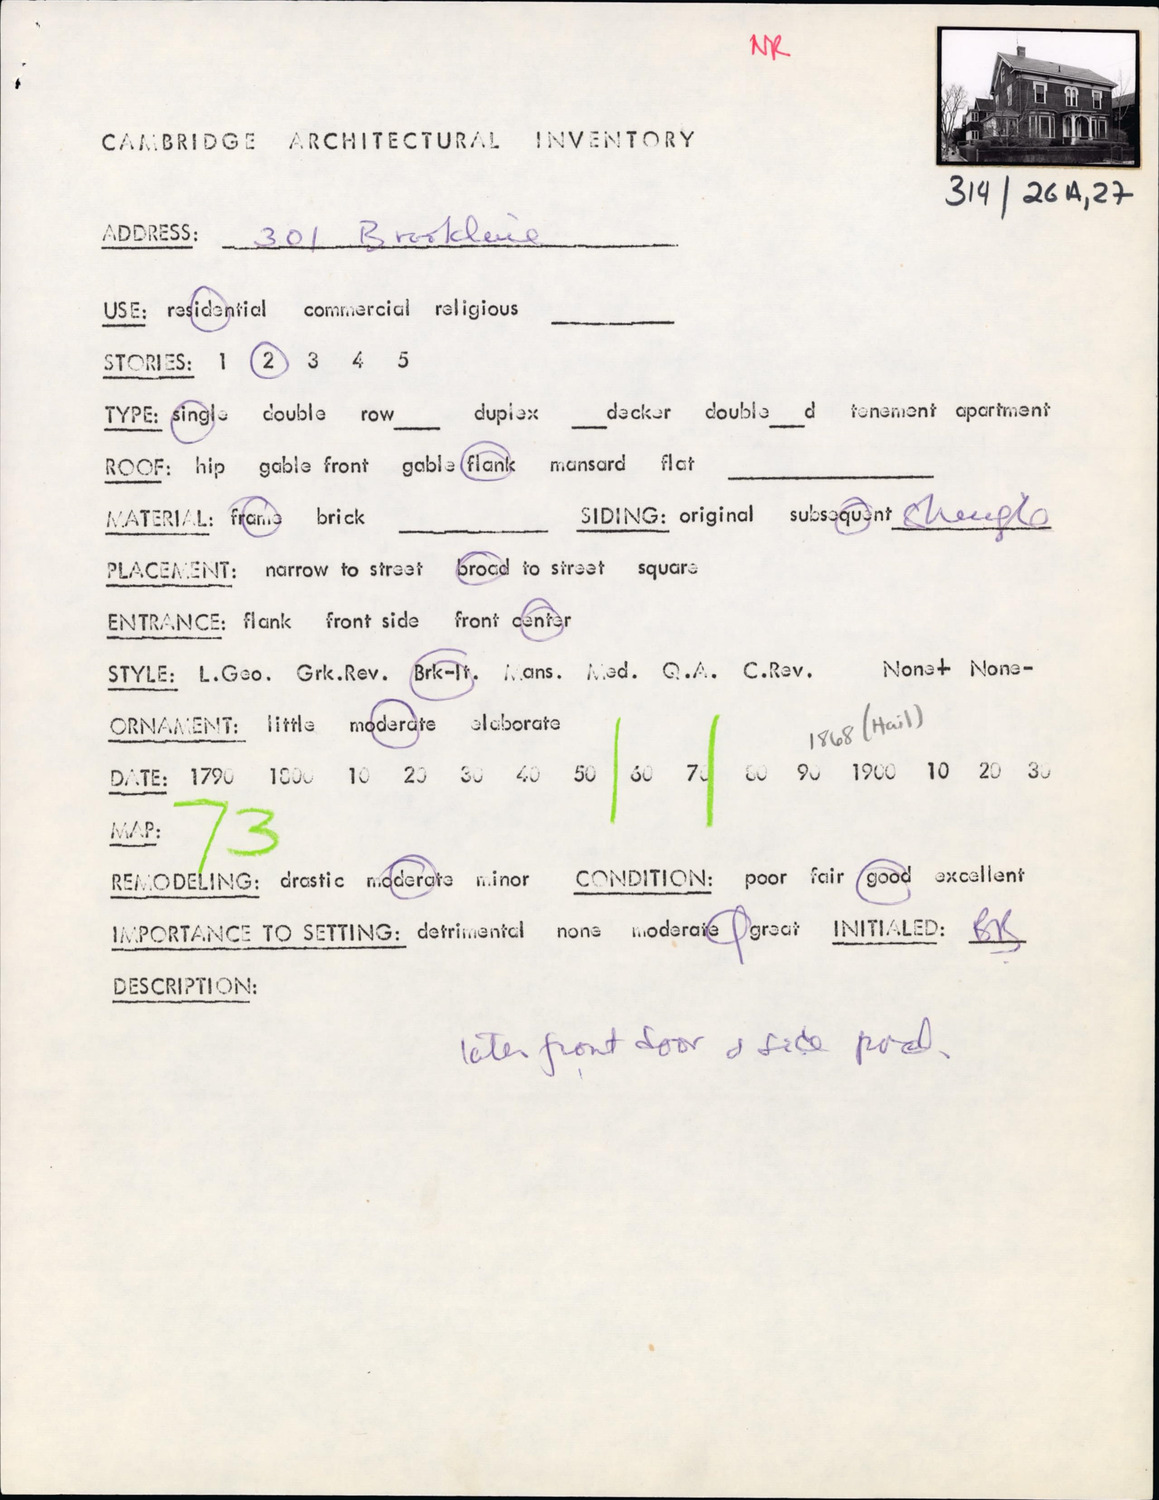 NR
314 / 26A, 27
CAMBRIDGE ARCHITECTURAL INVENTORY
ADDRESS: 301 Brookline
USE: residential commercial religious
STORIES: 1 2 3 4 5
TYPE: single double row___ duplex ___decker double___d tenement apartment
ROOF: hip gable front gable flank mansard flat
MATERIAL: frame brick SIDING: original subsequent shingle
PLACEMENT: narrow to street broad to street square
ENTRANCE: flank front side front center
STYLE: L.Geo. Grk.Rev. Brk-It. Mans. Med. Q.A. C.Rev. None+ None-
ORNAMENT: little moderate elaborate
1868 (Hail)
DATE: 1790 1800 10 20 30 40 50 60 70 80 90 1900 10 20 30
MAP: 73
REMODELING: drastic moderate minor CONDITION: poor fair good excellent
IMPORTANCE TO SETTING: detrimental none moderate great INITIALED: BR
DESCRIPTION:
later front door & side porch.